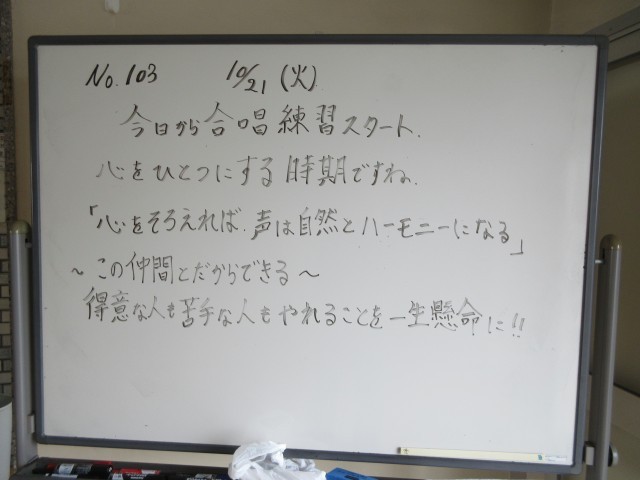 No.103 10/21(火)
今日から合唱練習スタート.
心をひとつにする時期ですね.
「心をそろえれば.声は自然とハーモニーになる」
~この仲間とだからできる~
得意な人も苦手な人もやれることを一生懸命に!!